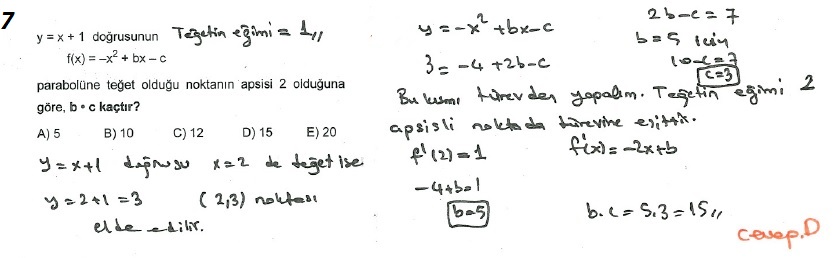 7
y = x + 1 doğrusunun Teğetin eğimi = 1,,
f(x) = –x² + bx – c
parabolüne teğet olduğu noktanın apsisi 2 olduğuna
göre, b • c kaçtır?
A) 5 B) 10 C) 12 D) 15 E) 20
y = x+1 doğrusu x=2 de teğet ise
y = 2+1 = 3 (2,3) noktası
elde edilir.
y = -x² + bx - c
3 = -4 + 2b - c
2b - c = 7
b = 5 için
10 - c = 7
c = 3
Bu kısmı türevden yapalım. Teğetin eğimi 2
apsisli noktada türevine eşittir.
f'(2) = 1 f'(x) = -2x + b
-4 + b = 1
b = 5
b.c = 5.3 = 15,,
cevap.D